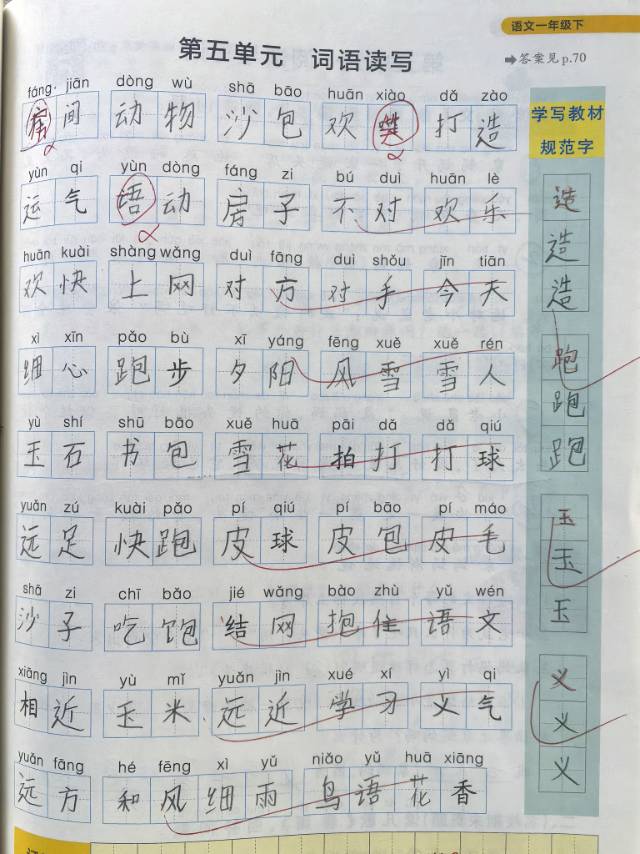 语文一年级下
第五单元 词语读写
➡答案见p.70
学写教材
规范字
fáng jiān dòng wù shā bāo huān xiào dǎ zào
房间 动物 沙包 欢 打造
yùn qi yùn dòng fáng zi bú duì huān lè
运气 语动 房子 不对 欢乐
huān kuài shàng wǎng duì fāng duì shǒu jīn tiān
欢快 上网 对方 对手 今天
xì xīn pǎo bù xī yáng fēng xuě xuě rén
细心 跑步 夕阳 风雪 雪人
yù shí shū bāo xuě huā pāi dǎ dǎ qiú
玉石 书包 雪花 拍打 打球
yuǎn zú kuài pǎo pí qiú pí bāo pí máo
远足 快跑 皮球 皮包 皮毛
shā zi chī bǎo jié wǎng bào zhù yǔ wén
沙子 吃饱 结网 抱住 语文
xiāng jìn yù mǐ yuǎn jìn xué xí yì qi
相近 玉米 远近 学习 义气
yuǎn fāng hé fēng xì yǔ niǎo yǔ huā xiāng
远方 和风细雨 鸟语花香
造
造
造
跑
跑
跑
玉
玉
玉
义
义
义